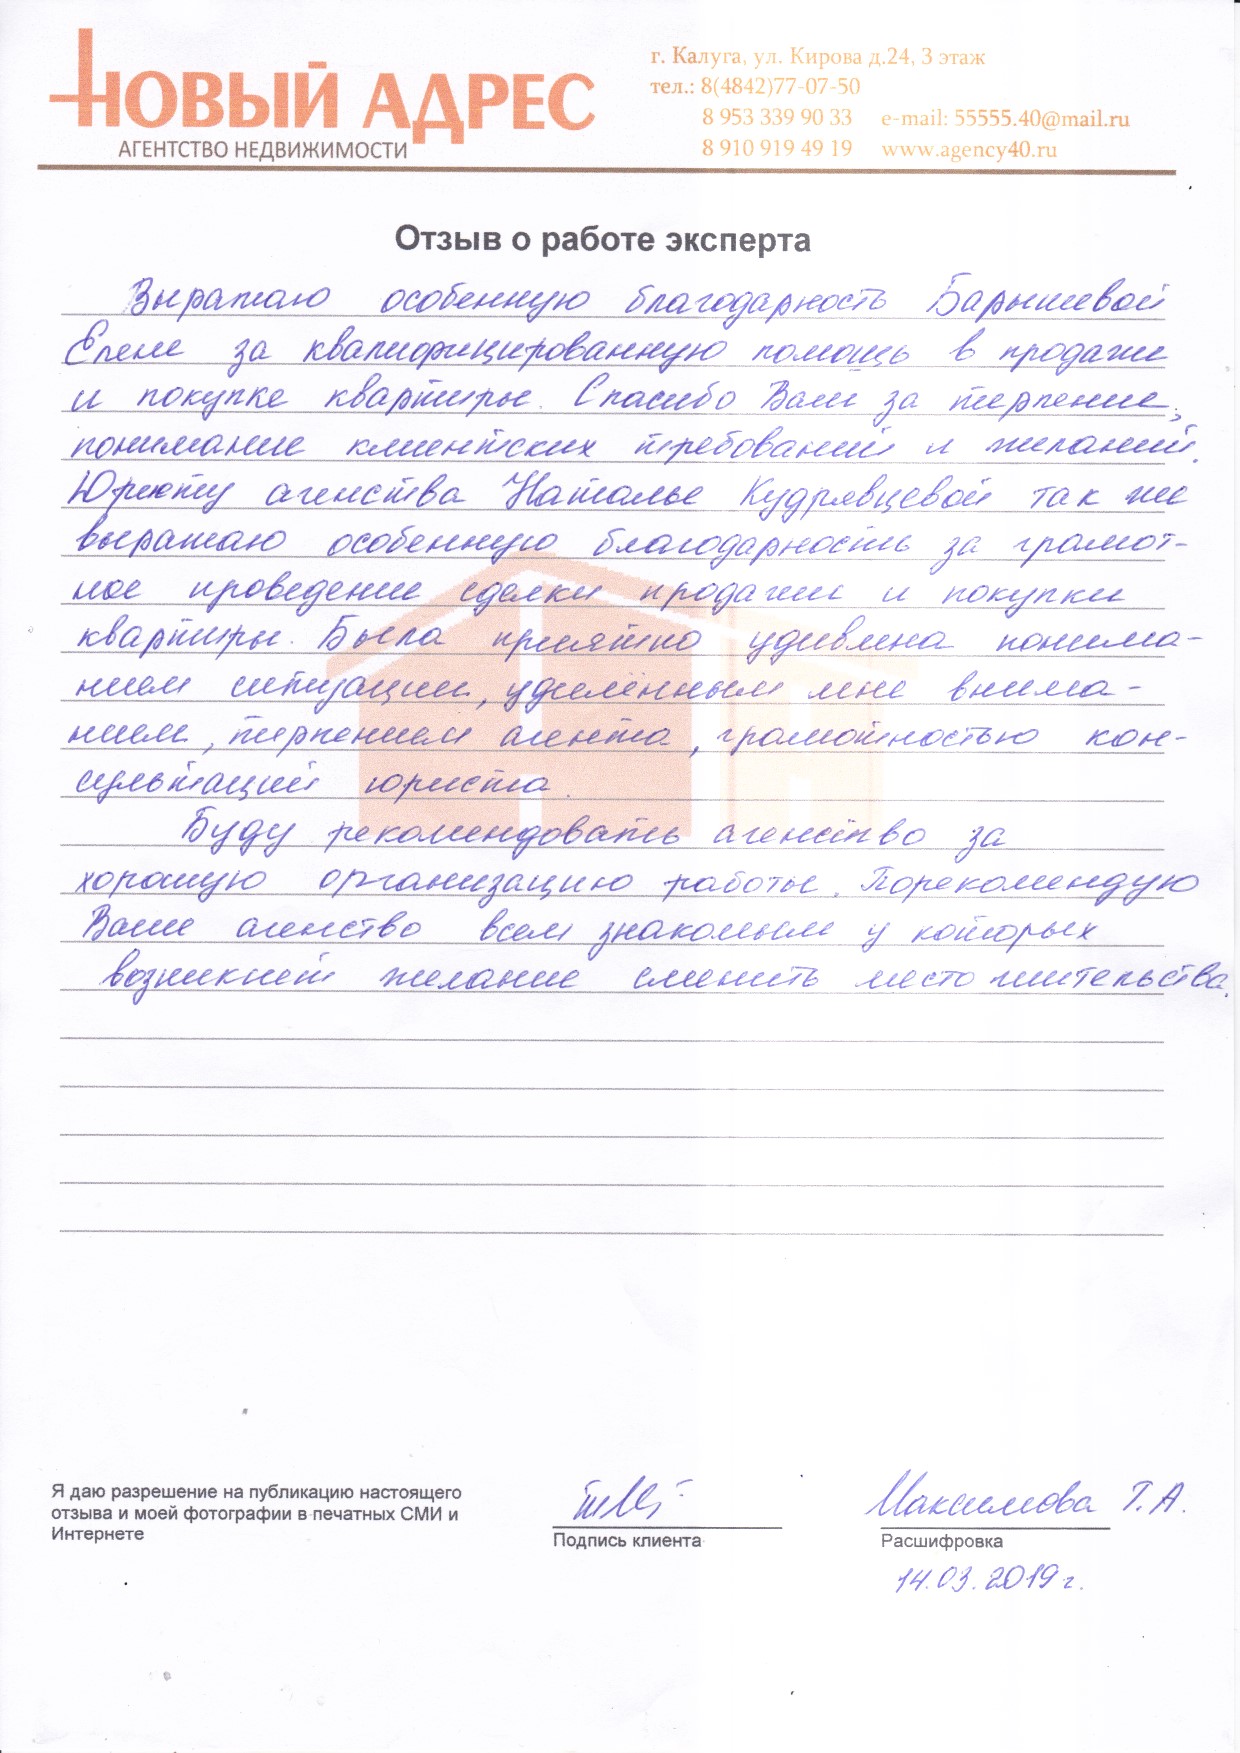 НОВЫЙ АДРЕС
АГЕНТСТВО НЕДВИЖИМОСТИ
г. Калуга, ул. Кирова д.24, 3 этаж
тел.: 8(4842)77-07-50
8 953 339 90 33 e-mail: 55555.40@mail.ru
8 910 919 49 19 www.agency40.ru
Отзыв о работе эксперта
Выражаю особенную благодарность Барышевой
Елене за квалифицированную помощь в продажи
и покупке квартиры. Спасибо Вам за терпение,
понимание клиентских требований и желаний.
Юристу агенства Наталье Кудрявцевой так же
выражаю особенную благодарность за грамот-
ное проведение сделки продажи и покупки
квартиры. Была приятно удивлена понима-
нием ситуации, уделённым мне внима-
нием, терпением агента, грамотностью кон-
сультаций юриста.
Буду рекомендовать агенство за
хорошую организацию работы. Порекомендую
Ваше агенство всем знакомым у которых
возникнет желание сменить место жительства.
Я даю разрешение на публикацию настоящего
отзыва и моей фотографии в печатных СМИ и
Интернете
Подпись клиента
Максимова Т.А.
Расшифровка
14.03.2019г.